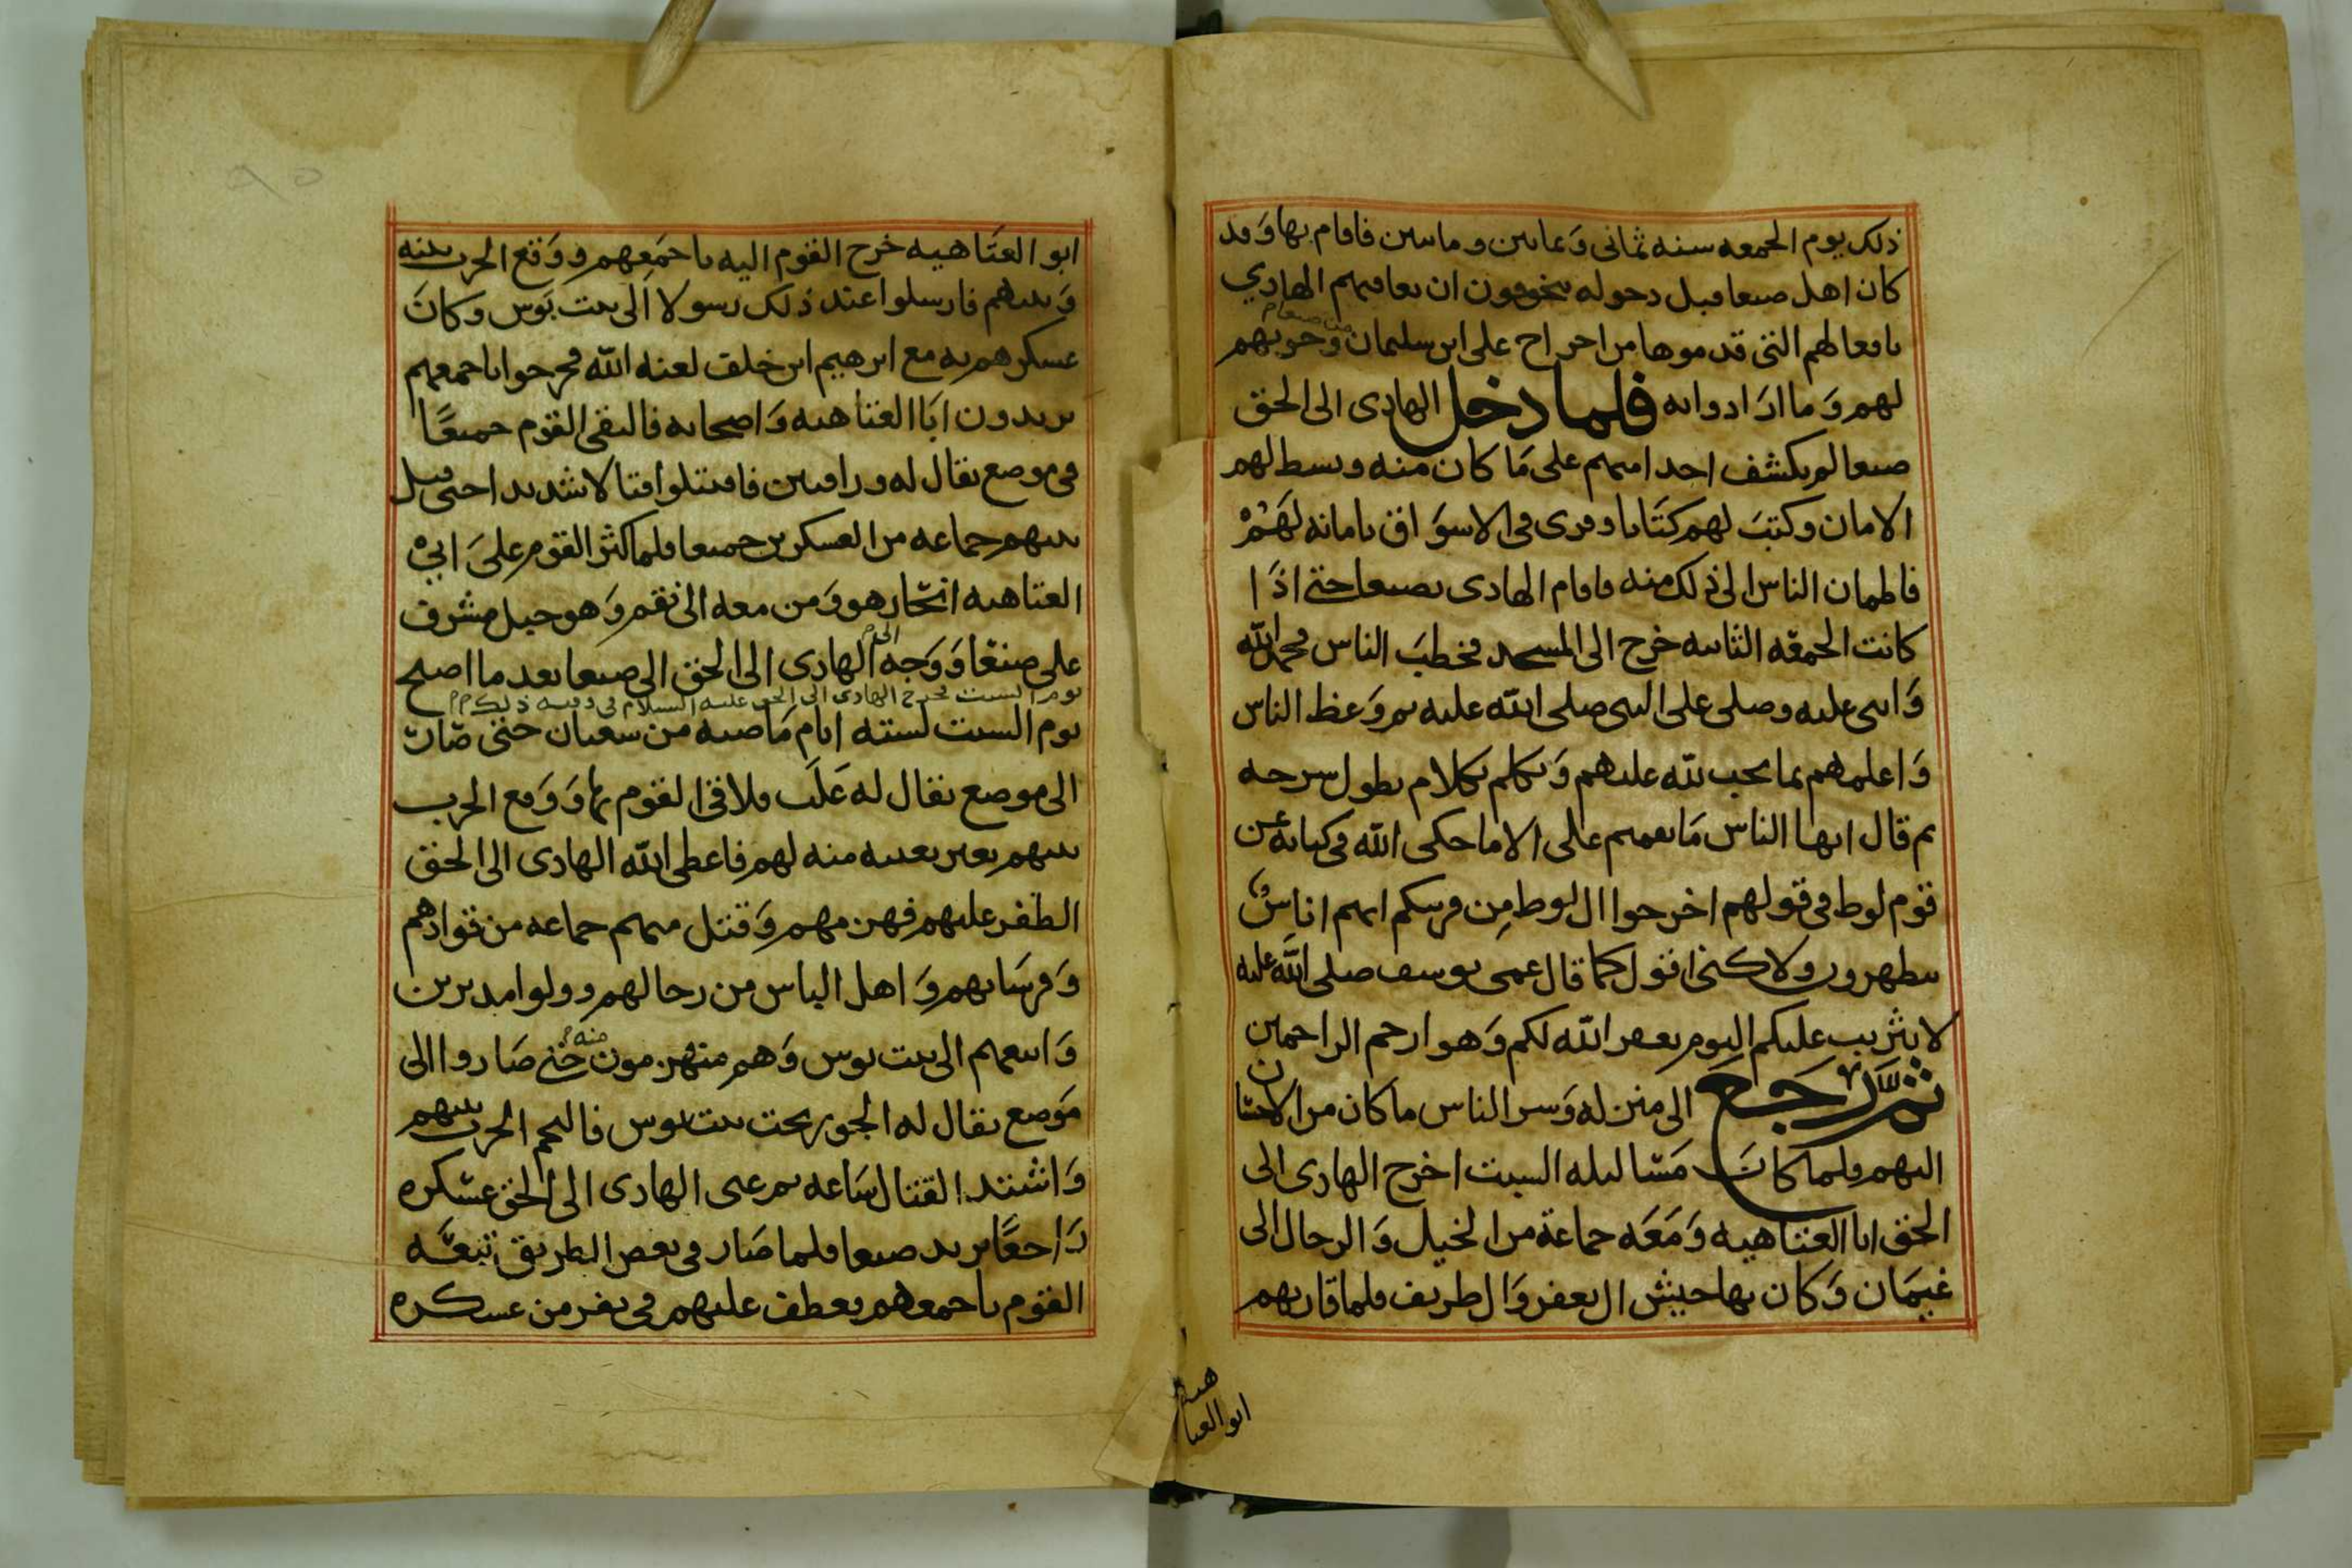 ذلك يوم الجمعه سنه ثمانى وَثمانين ومايتين فاقام بها وَقد
كان اهل صنعا قبل دخوله يتخوفون ان يعاقبهم الهادي
بافعالهم التى قدموها من اخراج على ابن سليمان من صنعا وحربهم
لهم وَما ارَادوا به فلما دخل الهادى الى الحق
صنعا لم يكشف احدا منهم على مَا كان منه وبسط لهم
الامان وكتبَ لهم كتَابا وقرى فى الاسوَاق بامانه لهَمْ
فاطمان الناس الى ذلك منه فاقام الهادى بصنعا حتى اذَا
كانت الجمعَه الثانيه خرج الى المسجد فخطبَ الناس فحمد الله
وَاثنى عليه وصلى على النبى صلى الله عليه ثم وَعظ الناس
وَاعلمهم بما يجب لله عليهم وَتكلم بكلام يطول شرحه
ثم قال ايها الناس مَا نقمتم على الا ما حكى الله فى كتابه عن
قوم لوط فى قولهم اخرجوا ال لوط مِن قريتكم انهم اناسٌ
يتطهرون ولاكنى اقول كما قال عمى يوسف صلى الله عليه
لا تثريب عليكم اليوم يغفر الله لكم وَهو ارحم الراحمين
ثم رَجَعَ الى منزله وَسر الناس ما كان من الاحسَان
اليهم فلما كانَ مَسَا ليله السبت اخرج الهادى الى
الحق ابا العتاهيه وَمَعَه جماعة من الخيل وَالرجال الى
غيمَان وَكان بها جيش ال يعفر وَال طريف فلما قاربهم
ابو العتاهيه
ابو العتَاهيه خرج القوم اليه باجمَعِهم ووَقع الحرب بينه
وَبينهم فارسلوا عند ذلك رسولا اَلى بيت بَوس وكانَ
عسكرهم به مع ابرهيم ابن خلف لعنه الله فخرجوا باجمعهم
يريدون ابَا العتاهيه وَاصحابه فالتقى القوم جميعًا
فى موضع يقال له فاقتتلوا قتالا شديدا حتى قتل
بينهم جماعه من العسكرين جميعا فلما كثر القوم علىَ ابىْ
العتاهيه انحَاز هو وَمن معه الى نقم وَهو جبل مشرف
على صنعَا وَوَجه الهادى الى الحق الى صنعا بعد ما اصبح
يوم السبت فخرج الهادى الى الحق عليه السلام فى وقته ذلك
يوم السبت لسته ايام مَاضيه من شعبان حتى صَارَ
الى موضع يقال له عَلَب فلاقى القوم بها وَوَقع الحرب
بينهم بغير تعبيه منه لهم فاعطى الله الهادى الى الحق
الظفر عليهم فهزمهم وَقتل منهم جماعه من قوادهم
وَفرسَانهم وَاهل الباس من رجالهم وولوا مدبرين
وَاتبعهم الى بيت بوس وَهم منهزمون منه حتى صَاروا الى
مَوضع يقال له الجور تحت بيت بوس فالتحم الحرب بينهم
وَاشتد القتال سَاعه ثم عبى الهادى الى الحق عسَكره
رَاجعًا يريد صنعا فلما صَار فى بعض الطريق تبعَه
القوم باجمعهم يعطف عليهم فى نفر من عسكره